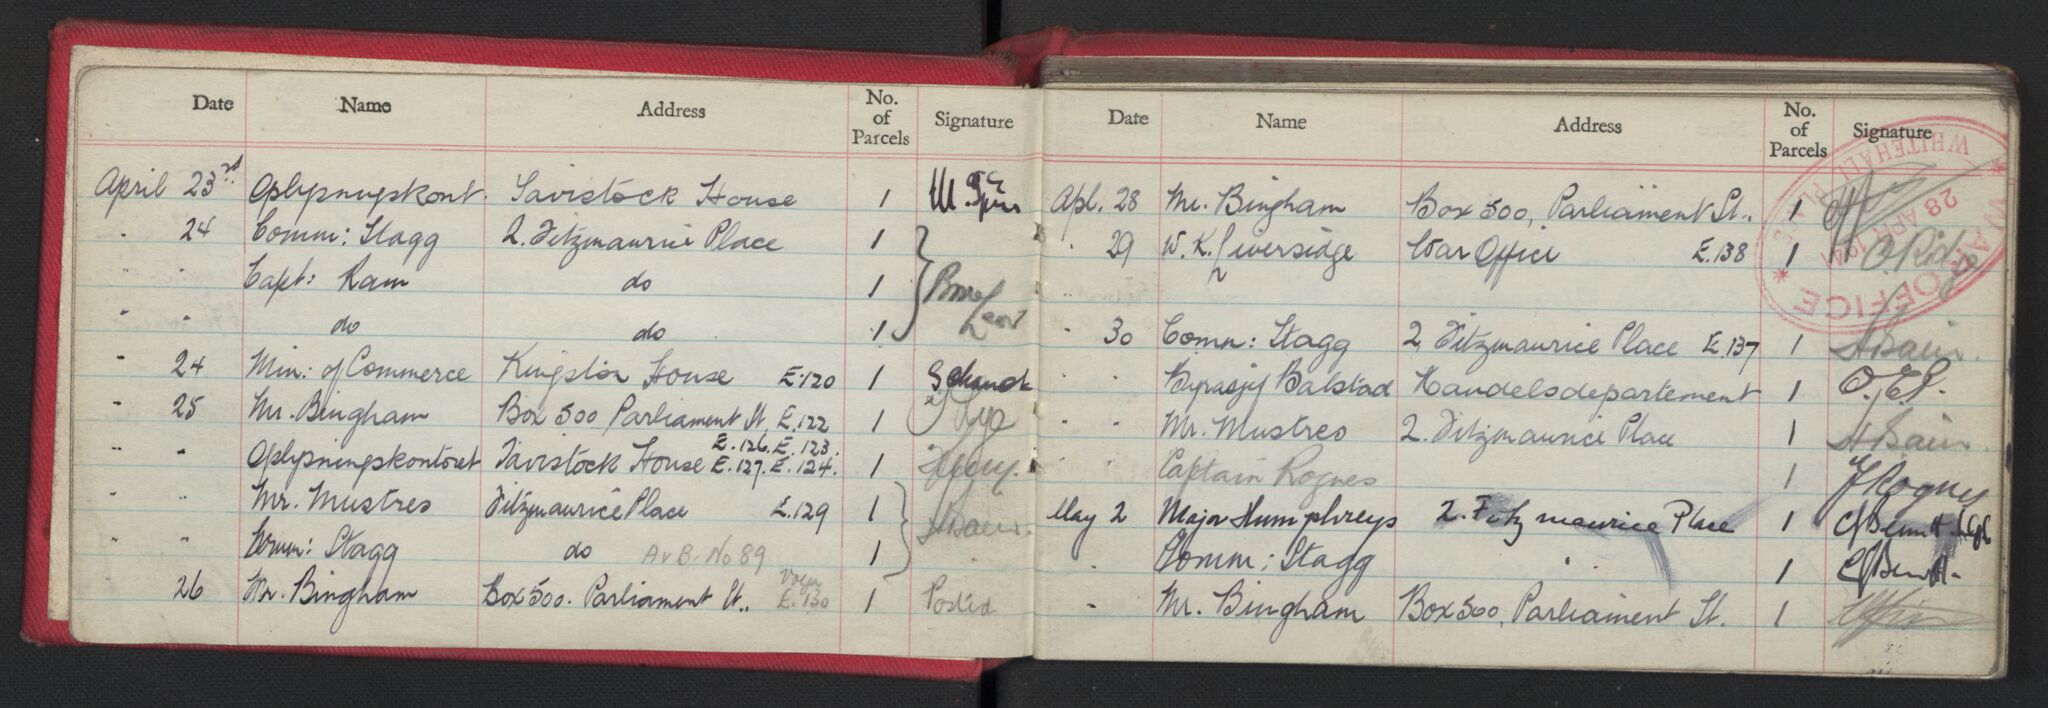 Date Name Address No. of Parcels Signature
April 23rd Oplysningskont. Tavistock House 1
" 24 Comm: Stagg 2. Fitzmaurice Place 1
" " Capt: Ram do 1
" " do do 1
" 24 Min: of Commerce Kingston House E.120 1
" 25 Mr. Bingham Box 500 Parliament St. E.122 1
E.126. E.123.
" " Oplysningskontoret Tavistock House E.127. E.124. 1
" " Mr. Mustres Fitzmaurice Place E.129 1
" " Comm: Stagg do A v B. No 89 1
26 Mr. Bingham Box 500. Parliament St.. E.130 1 Posted
Date Name Address No. of Parcels Signature
Apl. 28 Mr. Bingham Box 500, Parliament St.. 1
" 29 W. K. Liversidge War Office E.138 1
"
" 30 Comm: Stagg 2, Fitzmaurice Place E.137 1
" " Byrasjef Balstad Handelsdepartement 1
" " Mr. Mustres 2. Fitzmaurice Place 1
" " Captain Rognes 1 Rognes
May 2 Major Humphreys 2. Fitzmaurice Place 1
" Comm: Stagg " " 1
" Mr. Bingham Box 500, Parliament St. 1
WAR OFFICE
WHITEHALL
28 APR 1941